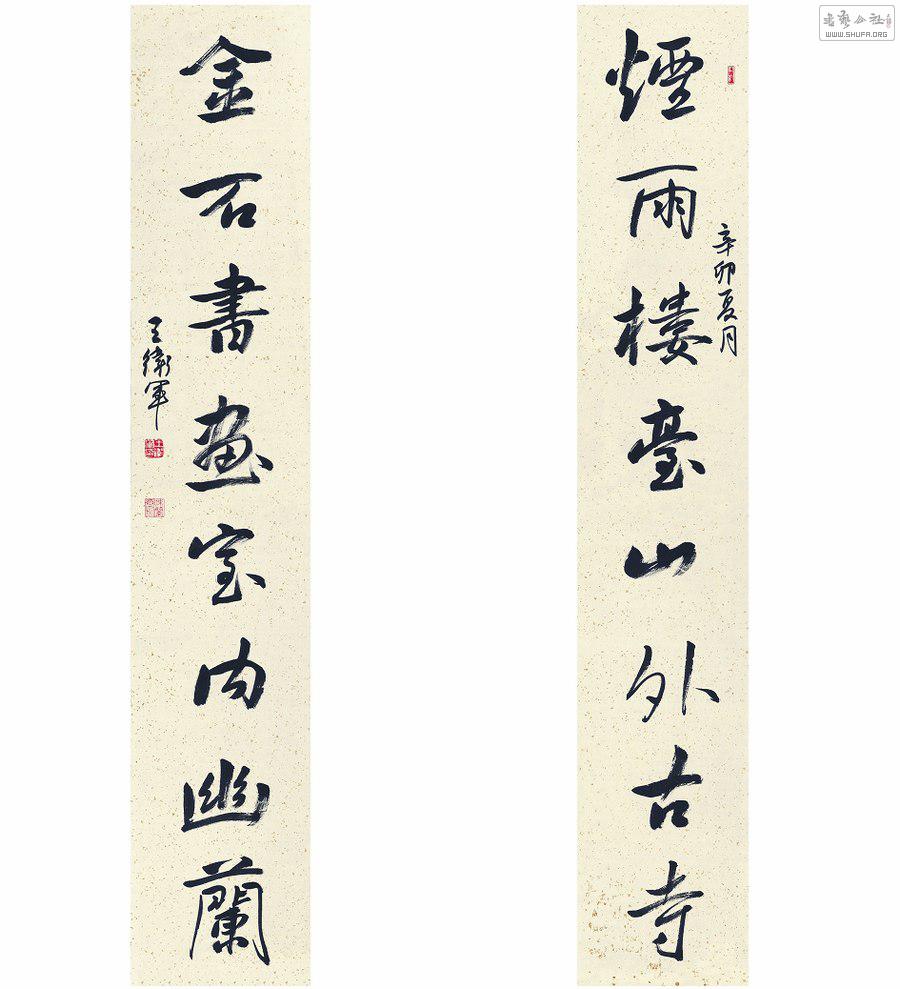 煙雨樓臺山外古寺
辛卯夏月
金石書畫室内幽蘭
王衛軍
書藝公社
WWW.SHUFA.ORG